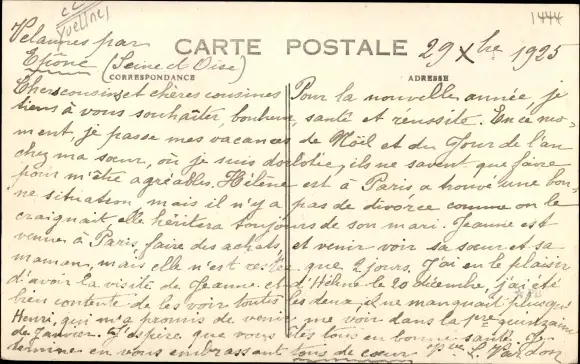 Yvelines
1444
Velannes par
Epône (Seine et Oise)
29 Xbre 1925
CARTE POSTALE
CORRESPONDANCE
ADRESSE
Chers cousins et chères cousines Pour la nouvelle année, je
tiens à vous souhaiter, bonheur, santé et réussite. En ce mo-
ment, je passe mes vacances de Nöil et du Jour de l'an
chez ma sœur, où je suis dorlotée, ils ne savent que faire
pour m'être agréables. Hélène est à Paris a trouvé une bon-
ne situation, mais il n'y a pas de divorce comme on le
craignait elle héritera toujours de son mari. Jeanne est
venue à Paris, faire des achats, et venir voir sa sœur et sa
maman, mais elle n'est restée que 2 jours. J'ai eu le plaisir
d'avoir la visite de Jeanne et d'Hélène le 20 décembre, j'ai été
bien contente de les voir toutes les deux, il ne manquait plus que
Henri, qui m'a promis de venir me voir dans la 1re quinzaine
de Janvier. J'espère que vous êtes tous en bonne santé. Je
termine en vous embrassant tous de cœur.